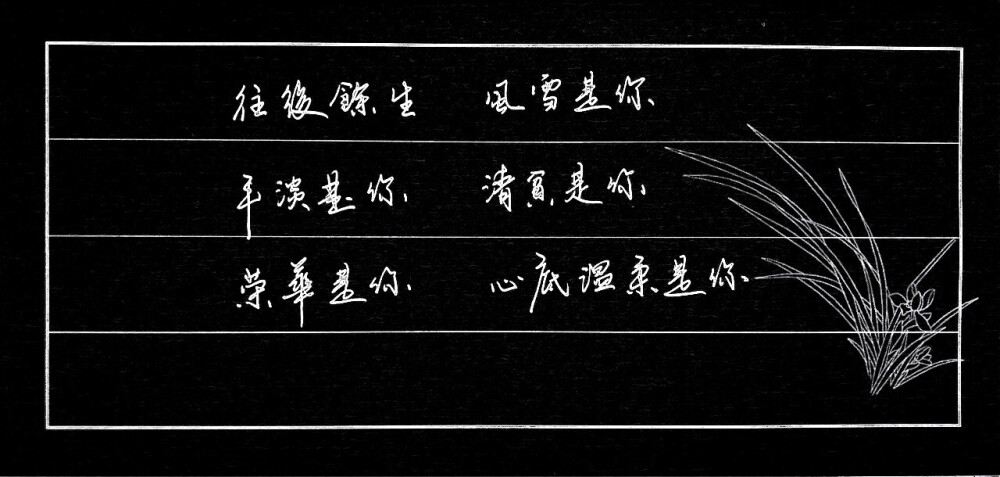 往後餘生 風雪是你
平淡是你 清貧是你
榮華是你 心底溫柔是你